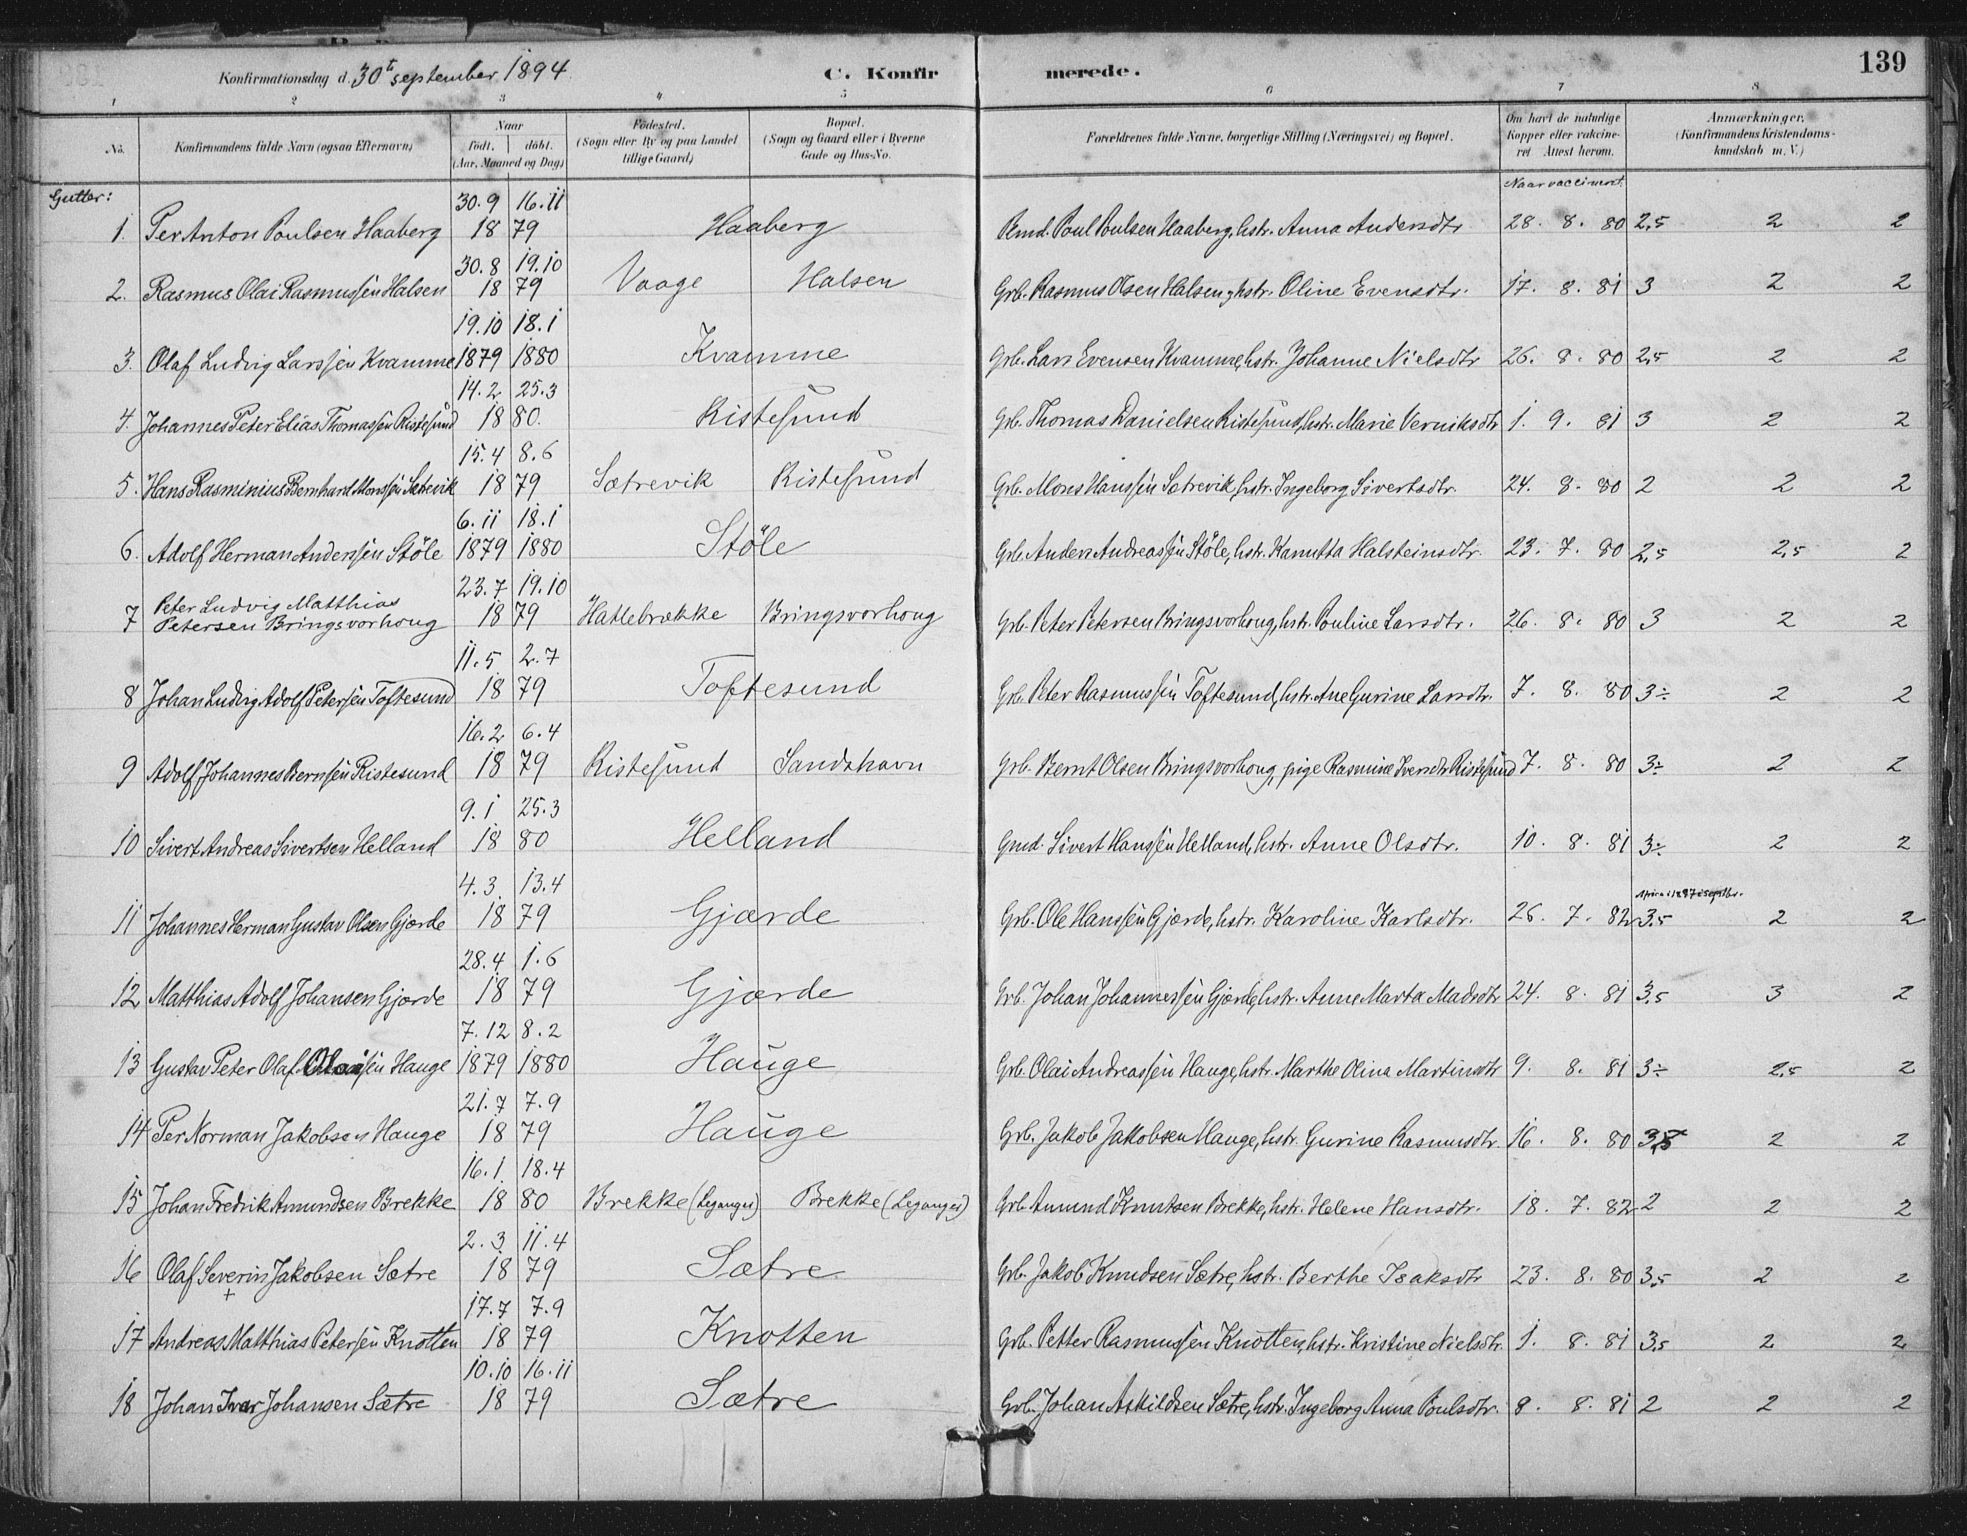 139
Konfirmationsdag d. 30te september 1894.
C. Konfirmerede.
1 2 3 4 5 6 7 8
No. Konfirmandens fulde Navn (ogsaa Efternavn) Naar født. døbt. (Aar, Maaned og Dag) Fødested. (Sogn eller By og paa Landet tillige Gaard) Bopæl. (Sogn og Gaard eller i Byerne Gade og Hus-No. Forældrenes fulde Navne, borgerlige Stilling (Næringsvei) og Bopæl. Om havt de naturlige Kopper eller vakcineret Attest herom. Anmærkninger. (Konfirmandens Kristendomskundskab m. V.)
Gutter: Naar vaccineret.
30.9 16.11
1. Per Anton Poulsen Haaberg 18 79 Haaberg Poul Poulsen Haaberg, hstr. Anna Andersdtr 28. 8. 80 2,5 2 2
30.8 19.10
2. Rasmus Olai Rasmussen Halsen 18 79 Vaage Halsen Grb. Rasmus Olsen Halsen, hstr. Oline Evensdtr. 17. 8. 81 3 2 2
19.10 18.1
3. Olaf Ludvig Larssen Kvamme 1879 1880 Kvamme Grb. Lars Evensen Kvamme, hstr. Johanne Nielsdtr 26. 8. 80 2,5 2 2
14.2 25.3
4. Johannes Peter Elias Thomassen Ristesund 18 80. Ristesund Grb. Thomas Danielsen Ristesund, hstr. Marie Verniksdtr 1. 9. 81 3 2 2
15.4 8.6
5. Hans Rasminius Bernhard Monssen Sætrevik 18 79 Sætrevik Ristesund Grb. Mons Hanssen Sætrevik, hstr. Ingeborg Sivertsdtr. 24. 8. 80 2 2 2
6.11 18.1
6. Adolf Herman Anderssen Støle 1879 1880 Støle Grb. Anders Andreassen Støle, hstr. Kanutta Halsteinsdtr. 23. 7. 80 2,5 2,5 2
23.7 19.10
7 Peter Ludvig Matthias
Petersen Bringsvorhoug 18 79 Hattebrække Bringsvorhoug Grb. Peter Petersen Bringsvorhoug, hstr. Pouline Larsdtr. 26. 8. 80 3 2 2
11.5 2.7
8 Johan Ludvig Adolf Petersen Toftesund 18 79 Toftesund Grb. Peter Rasmussen Toftesund, hstr. Ane Gurine Larsdtr. 7. 8. 80 3÷ 2 2
16.2 6.4
9 Adolf Johannes Bernsen Ristesund 18 79 Ristesund Sandshavn Grb. Bernt Olsen Bringsvorhoug, pige Rasmine Iversdtr Ristesund 7. 8. 80 3÷ 2 2
9.1 25.3
10 Sivert Andreas Sivertsen Helland 18 80 Helland Gmd. Sivert Hanssen Helland, hstr. Anne Olsdtr. 10. 8. 81 3÷ 2 2
4.3 13.4
11 Johannes Herman Gustav Olsen Gjærde 18 79 Gjærde Grb. Ole Hanssen Gjærde, hstr. Karoline Karlsdtr. 26. 7. 82 3,5 2 2
28.4 1.6
12 Matthias Adolf Johansen Gjærde 18 79 Gjærde Grb. Johan Johannessen Gjærde, hstr. Anne Marta Madsdtr 24. 8. 81 3,5 3 2
7.12 8.2
13 Gustav Peter Olaf Olaisen Hauge 1879 1880 Hauge Grb. Olai Andreassen Hauge, hstr. Marthe Olina Martinsdtr 9. 8. 81 3÷ 2,5 2
21.7 7.9
14 Per Norman Jakobsen Hauge 18 79 Hauge Grb. Jakob Jakobsen Hauge, hstr. Gurine Rasmusdtr. 16. 8. 80 3,5 2 2
16.1 18.4
15 Johan Fredrik Amundsen Brekke 18 80 Brekke (Leganger) Brekke (Leganger) Grb. Amund Knutsen Brekke, hstr. Helene Hansdtr. 18. 7. 82 2 2 2
2.3 11.4
16 Olaf Severin Jakobsen Sætre 18 79 Sætre Grb. Jakob Knudsen Sætre, hstr. Berthe Isaksdtr 23. 8. 80 3,5 2 2
+ 17.7 7.9
17 Andreas Matthias Petersen Knotten 18 79 Knotten Grb. Petter Rasmussen Knotten, hstr. Kristine Nielsdtr. 1. 8. 81 3,5 2 2
10.10 16.11
18 Johan Ivar Johansen Sætre 18 79 Sætre Grb. Johan Askildsen Sætre, hstr. Ingeborg Anna Poulsdtr. 8. 8. 81 2 2 2